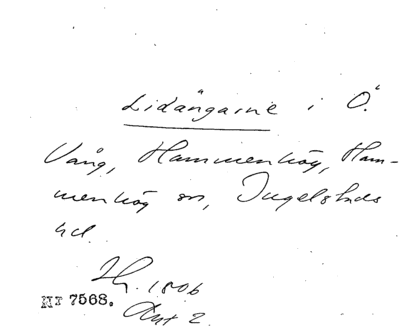 Lidängarne i Ö.
Vång, Hammenhög, Ham-
menhög sn, Ingelstads
hd.
1806
NT 7568. Akt 2